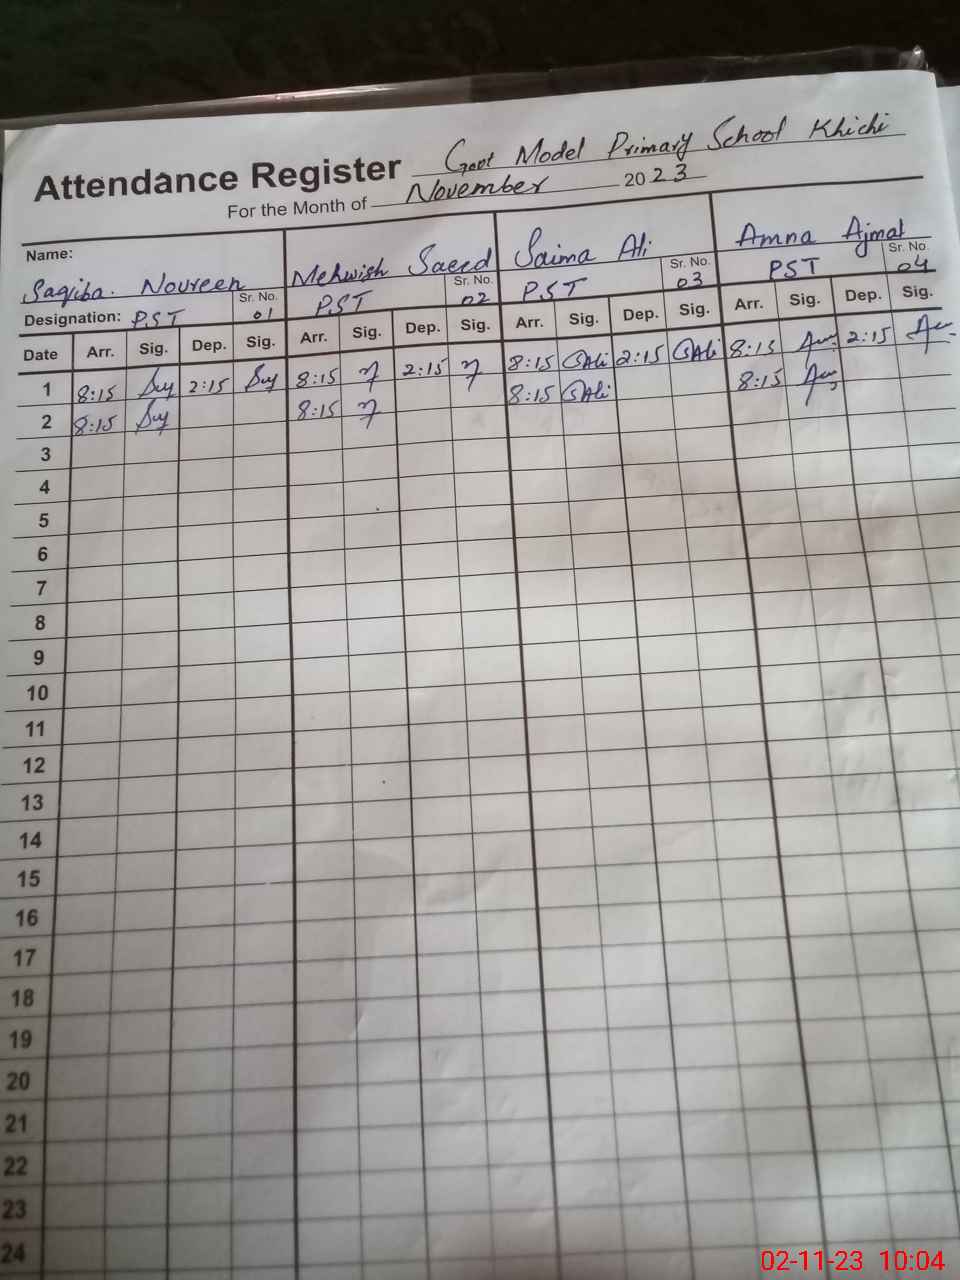 Attendance Register Govt Model Primary School Khichi
For the Month of November 2023
Name: Saqiba. Noureen Mehwish Saeed Saima Ali Amna Ajmal
Designation: PST Sr. No. 01 PST Sr. No. 02 PST Sr. No. 03 PST Sr. No. 04
Date Arr. Sig. Dep. Sig. Arr. Sig. Dep. Sig. Arr. Sig. Dep. Sig. Arr. Sig. Dep. Sig.
1 8:15 2:15 8:15 2:15 8:15 SAli 2:15 SAli 8:15 2:15
2 8:15 8:15 8:15 SAli 8:15
3
4
5
6
7
8
9
10
11
12
13
14
15
16
17
18
19
20
21
22
23
24
02-11-23 10:04